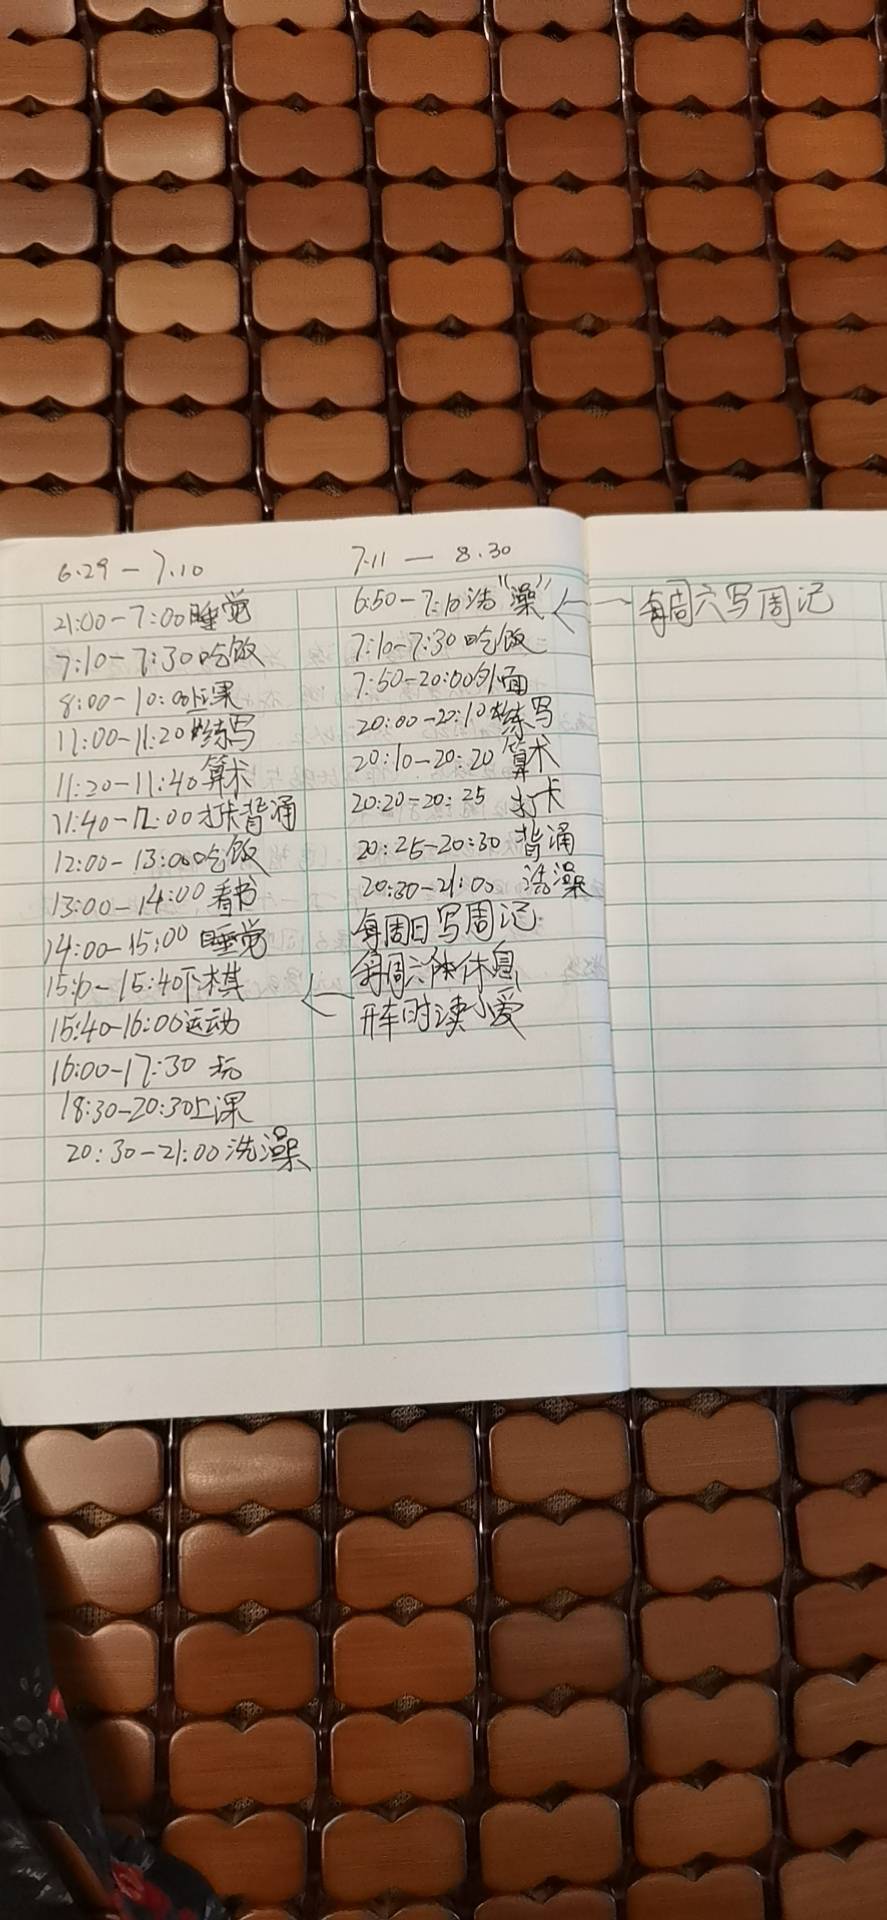 6.29 — 7.10
21:00-7:00睡觉
7:10-7:30吃饭
8:00-10:00上课
11:00-11:20练写
11:20-11:40算术
11:40-12:00打卡背诵
12:00-13:00吃饭
13:00-14:00看书
14:00-15:00 睡觉
15:10-15:40下棋
15:40-16:00运动
16:00-17:30 玩
18:30-20:30上课
20:30-21:00洗澡
7.11 — 8.30
6:50-7:10洗“澡”
7:10-7:30吃饭
7:50-20:00外面
20:00-20:10练写
20:10-20:20 算术
20:20-20:25 打卡
20:25-20:30 背诵
20:30-21:00 洗澡
每周日写周记
每周六休息
开车时读小爱
每周六写周记